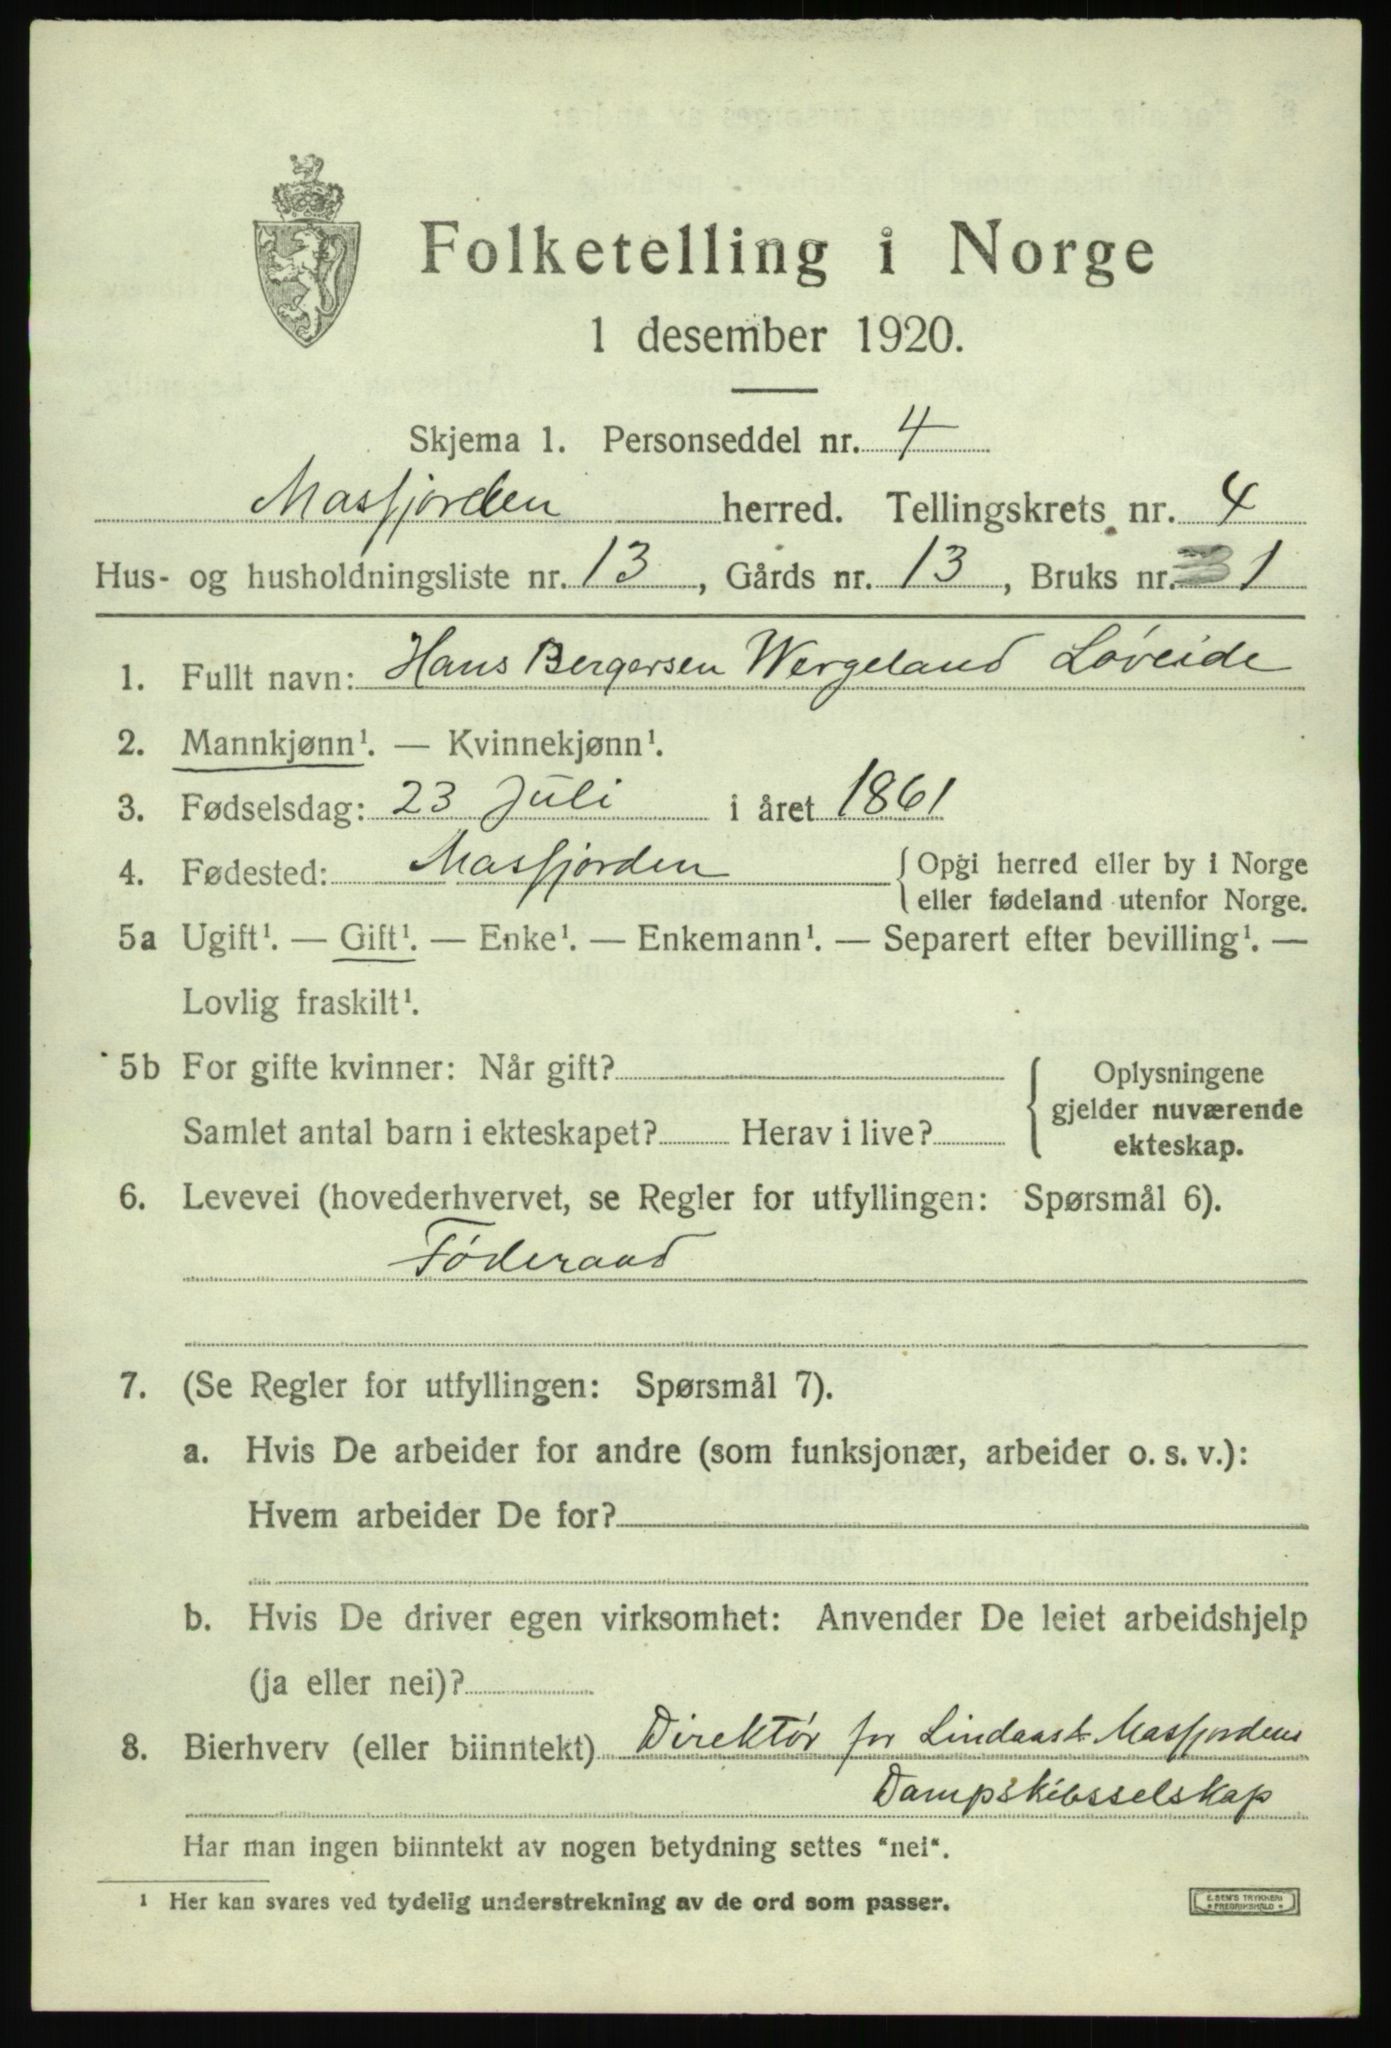 Folketelling i Norge
1 desember 1920.
Skjema 1. Personseddel nr. 4
Masfjorden herred. Tellingskrets nr. 4
Hus- og husholdningsliste nr. 13, Gårds nr. 13, Bruks nr. 1
1. Fullt navn: Hans Bergersen Wergeland Løveide
2. Mannkjønn¹. — Kvinnekjønn¹.
3. Fødselsdag: 23 Juli i året 1861
4. Fødested: Masfjorden { Opgi herred eller by i Norge
eller fødeland utenfor Norge.
5a Ugift¹. — Gift¹. — Enke¹. — Enkemann¹. — Separert efter bevilling¹. —
Lovlig fraskilt¹.
5b For gifte kvinner: Når gift?
Samlet antal barn i ekteskapet? Herav i live?
{ Oplysningene
gjelder nuværende
ekteskap.
6. Levevei (hovederhvervet, se Regler for utfyllingen: Spørsmål 6).
Føderaad
7. (Se Regler for utfyllingen: Spørsmål 7).
a. Hvis De arbeider for andre (som funksjonær, arbeider o. s. v.):
Hvem arbeider De for?
b. Hvis De driver egen virksomhet: Anvender De leiet arbeidshjelp
(ja eller nei)?
8. Bierhverv (eller biinntekt) Direktør for Lindaas & Masfjordens
Dampskibsselskap
Har man ingen biinntekt av nogen betydning settes "nei".
1 Her kan svares ved tydelig understrekning av de ord som passer.
E. SEM'S TRYKKERI
* FREDRIKSHALD *